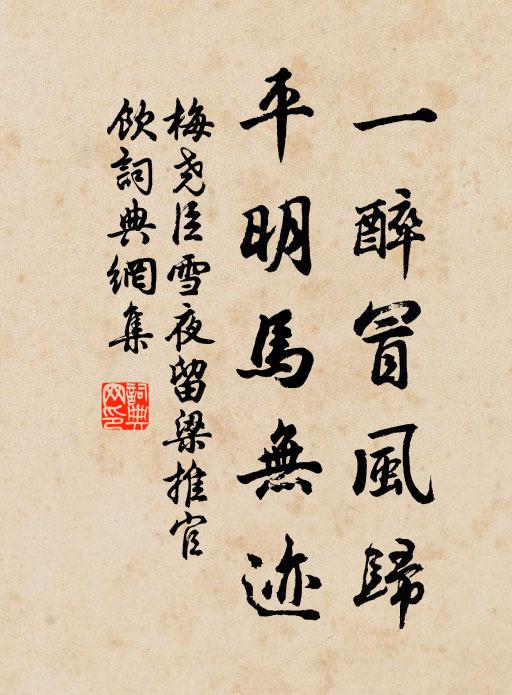 一醉冒風歸
平明馬無迹
梅尧臣雪夜留梁推官
飲詞典網集
詞典网印